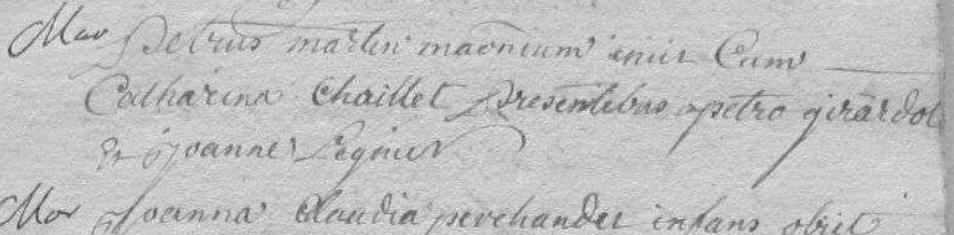 Mar petrus martin maõnium iniit Cum
Catharina Chaillet presentibus petro girardot
Et joanne
Mor joanna Claudia perchandet infans obiit